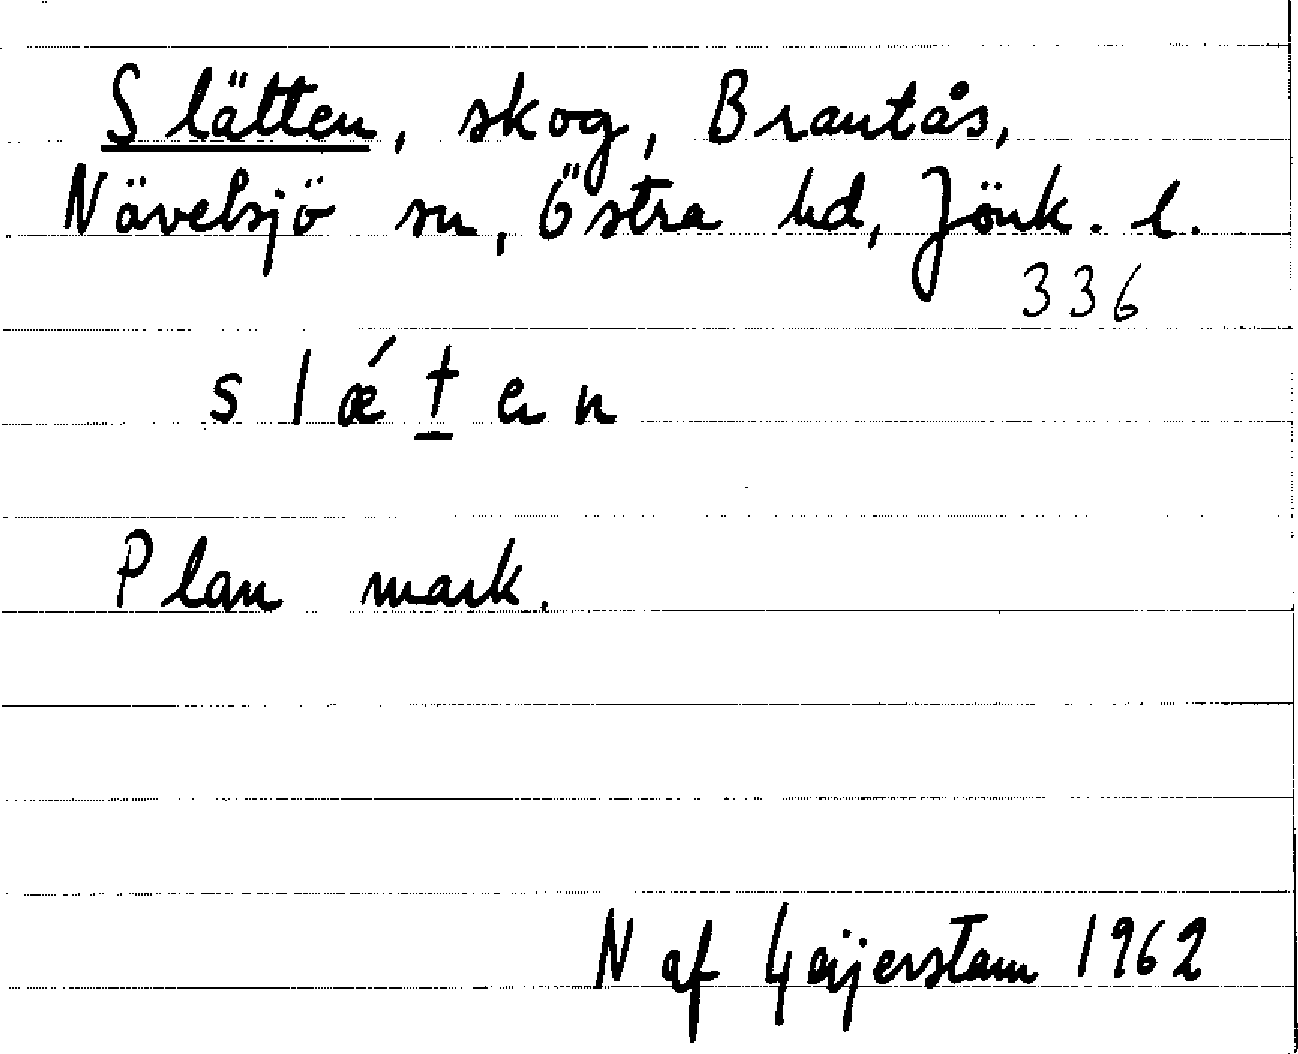 Slätten, skog, Brantås,
Nävelsjö sn, Östra hd, Jönk. l.
336
s l ǽ t̲ e n
Plan mark.
N af Geijerstam 1962